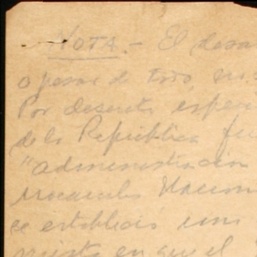 NOTA.- El desa
a pesar de todo, en
Por decreto espec
de la Republica fu
"administracion
Nacion
se establecio una
en que el "